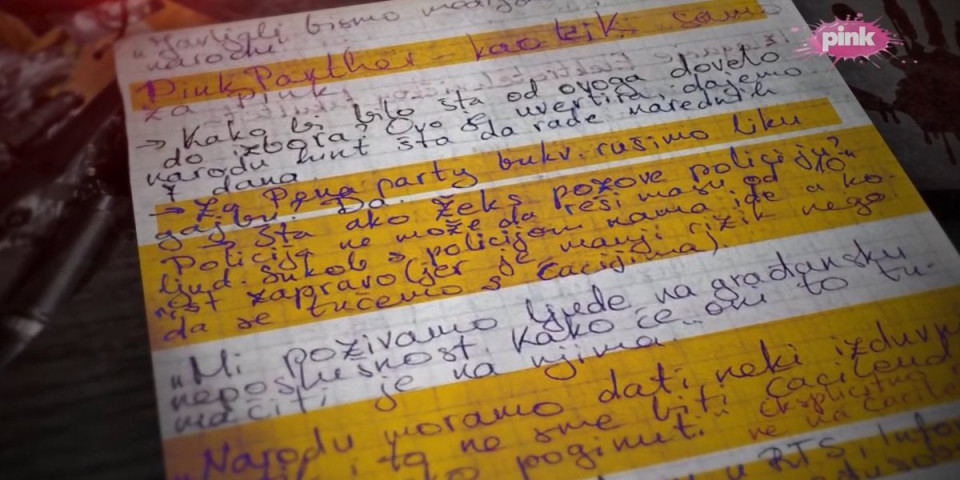 bismo
narodu
Pink Panther - kao trik samo
za pink
pink
→ Kako bi bilo šta od ovoga dovelo
do izbora? Ovo je uvertira, dajemo
narodu hint šta da rade narednih
7 dana
→ Za Pena party bukv. rušimo Iiku
gajbu. Da.
Šta ako Žeks pozove policiju?
Policija ne može da reši masu od 10
ljud. Sukob s policijom nama ide u ko-
rist zapravo (jer je manji rizik nego
da se tučemo s Ćacijima).
„Mi pozivamo ljude na građansku
neposlušnost. Kako će oni to tu-
mačiti je na njima.
Narodu moramo dati neki izduvni
i to ne sme biti Ćacilend
poginuti. eksplicitno
ne na Ćacilend
u RTS, Infor